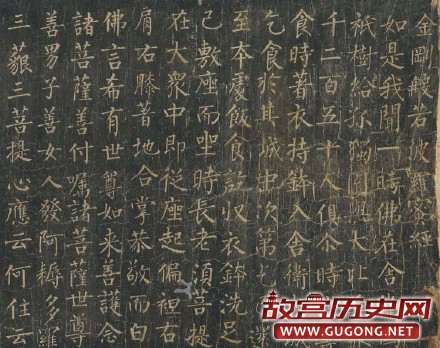 金剛般若波羅蜜經
如是我聞一時佛在舍國
祇樹給孤獨園與大比
千二百五十人俱尒時
食時著衣持鉢入舍衛城
乞食於其城中次第
至本處飯食訖収衣鉢洗足
已敷座而坐時長老須菩提
在大衆中即從座起偏袒右
肩右膝著地合掌恭敬而白
佛言希有世尊如来善護念
諸菩薩善付囑諸菩薩世尊
善男子善女人發阿耨多羅
三藐三菩提心應云何住云
故宫历史网
WWW.GUGONG.NET